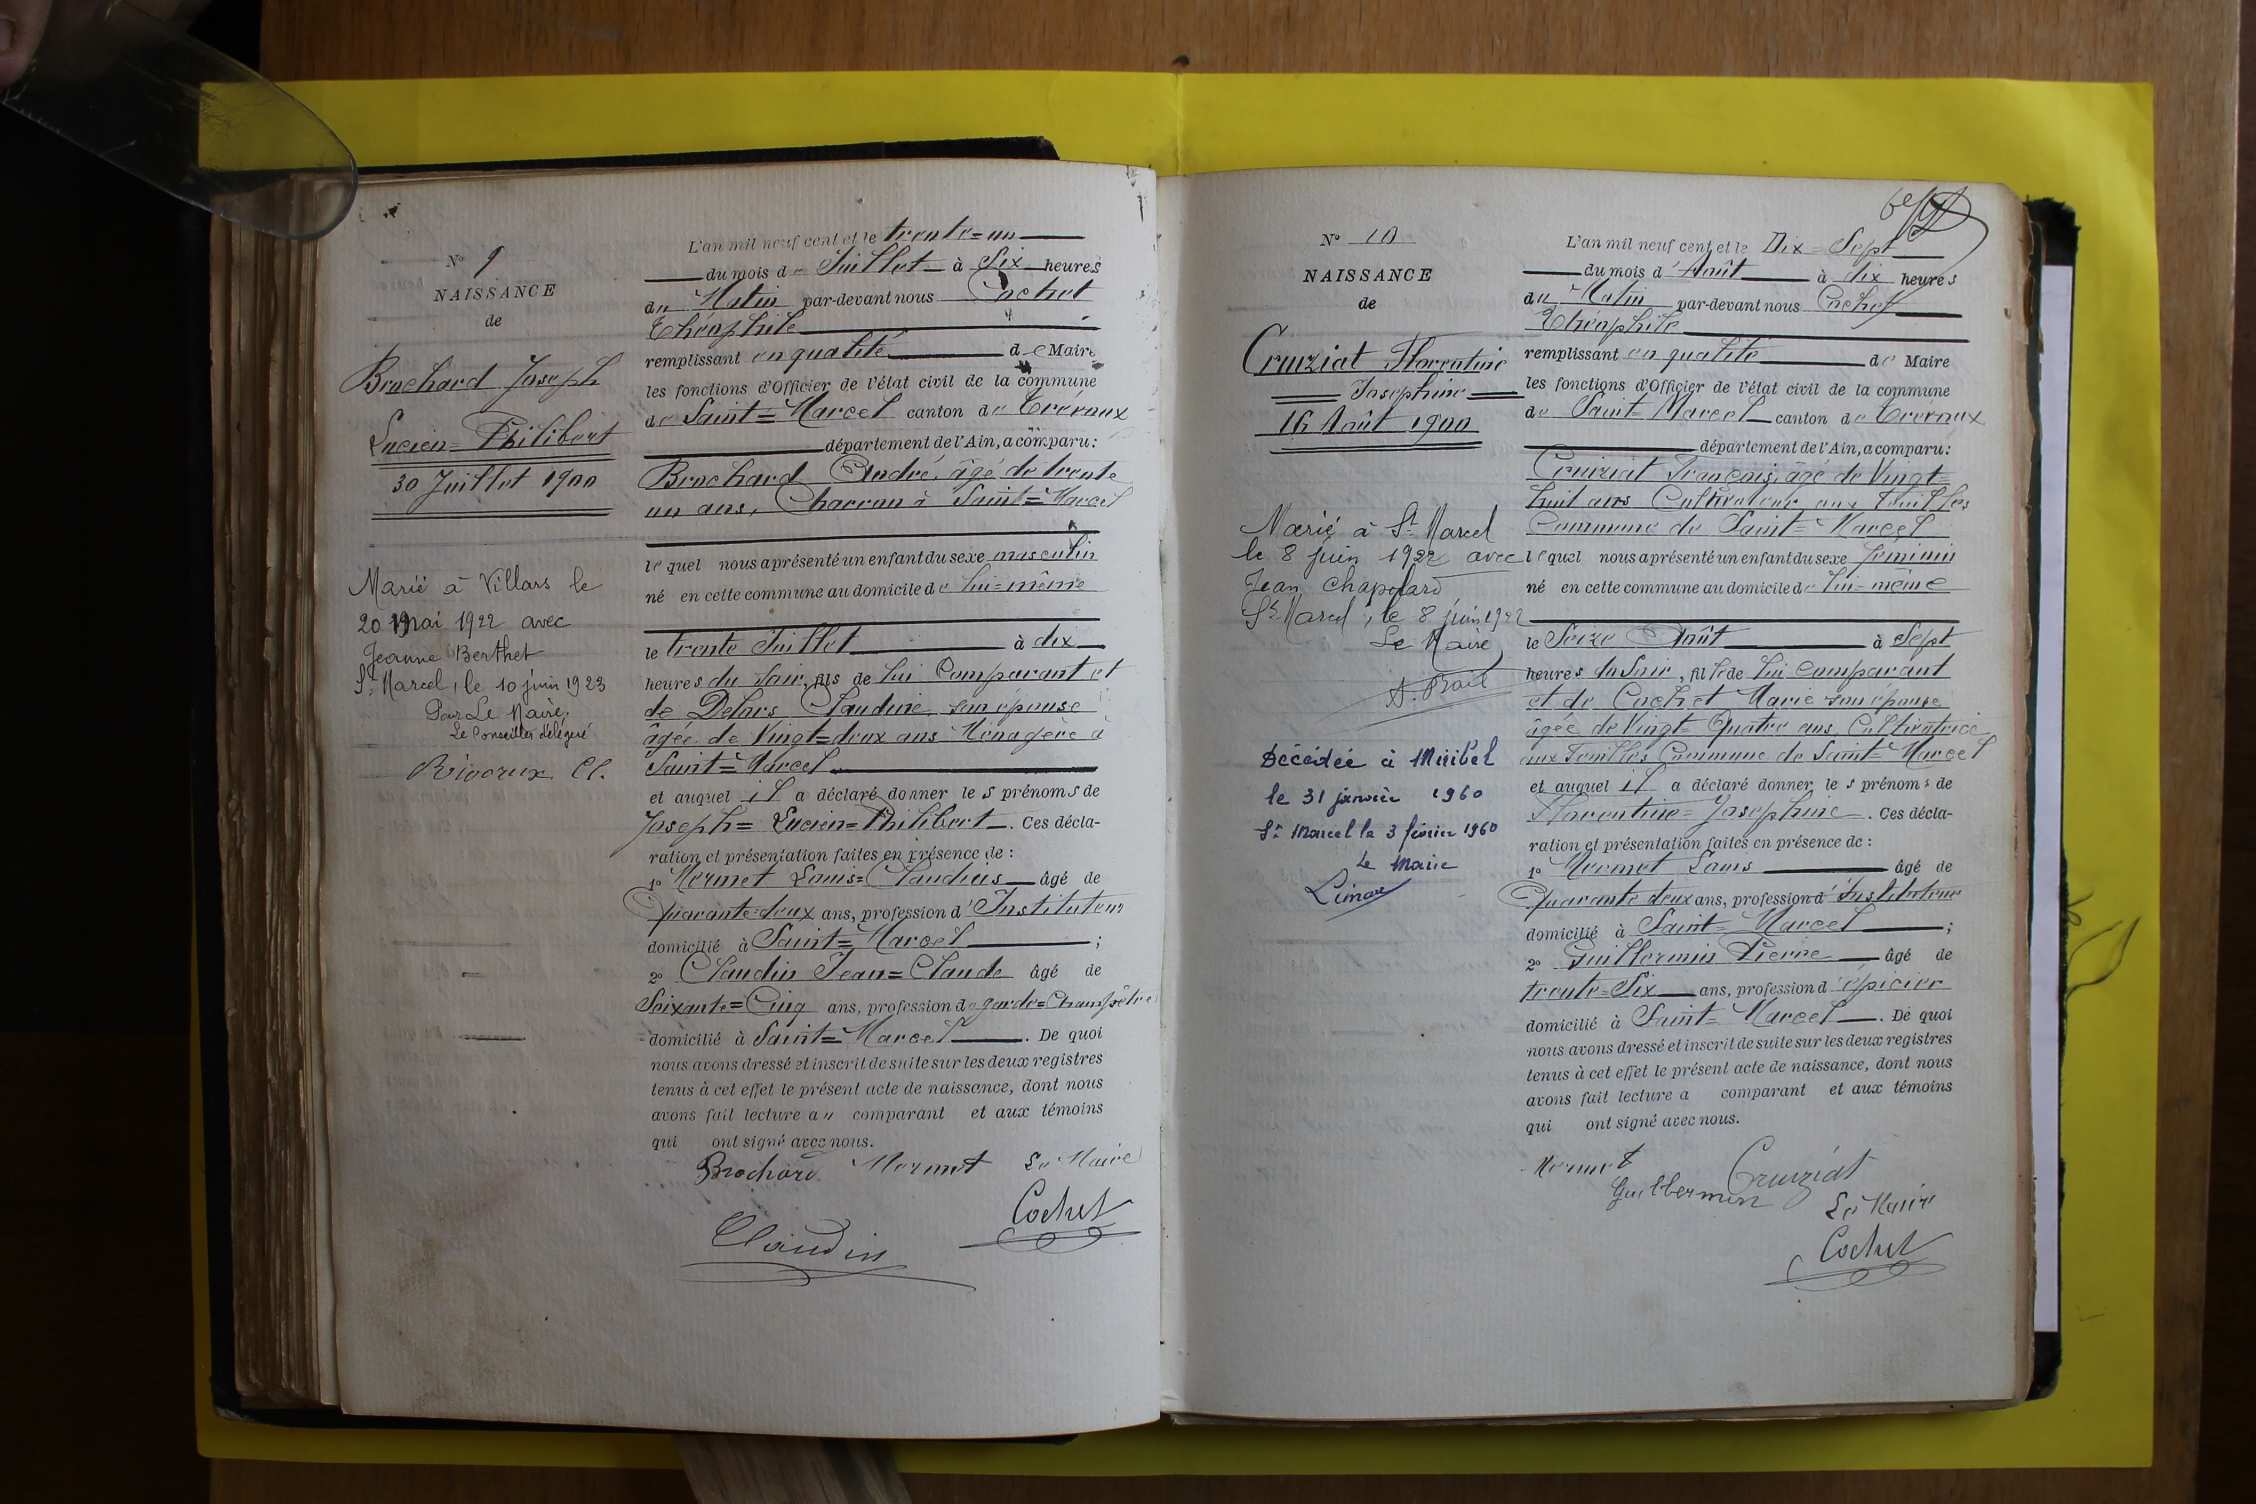 N° 9
NAISSANCE
de
Brochard Joseph
Lucien=Philibert
30 Juillet 1900
Marié à Villars le
20 mai 1922 avec
Jeanne Berthet
St Marcel, le 10 juin 1923
Pour Le Maire,
Le Conseiller délégué
L'an mil neuf cent et le trente=un
du mois de Juillet à Six heures
du Matin par-devant nous Cochet
Théophile
remplissant en qualité de Maire
les fonctions d'Officier de l'état civil de la commune
de Saint=Marcel canton de Trévoux
département de l'Ain, a comparu:
Brochard André, âgé de trente
un ans, Charron à Saint=Marcel
lequel nous a présenté un enfant du sexe masculin
né en cette commune au domicile de lui=même
le trente Juillet à dix
heures du Soir, fils de lui Comparant et
de Delors Claudine son épouse
âgée de Vingt=deux ans Ménagère à
Saint=Marcel
et auquel il a déclaré donner les prénoms de
Joseph=Lucien=Philibert. Ces décla-
ration et présentation faites en présence de :
1° Mermet Louis=Claudius âgé de
Quarante=deux ans, profession d'Instituteur
domicilié à Saint=Marcel ;
2° Claudin Jean=Claude âgé de
Soixante=Cinq ans, profession de garde=Champêtre
domicilié à Saint=Marcel. De quoi
nous avons dressé et inscrit de suite sur les deux registres
tenus à cet effet le présent acte de naissance, dont nous
avons fait lecture au comparant et aux témoins
qui ont signé avec nous.
Brochard Mermet Le Maire
Cochet
Claudin
N° 10
NAISSANCE
de
Cruiziat Florentine
Josephine
16 Août 1900
Marié à St Marcel
le 8 juin 1922 avec
Jean Chapolard
St Marcel, le 8 juin 1922
Le Maire
Décédée à Miribel
le 31 janvier 1960
St Marcel le 3 février 1960
Le Maire
L'an mil neuf cent et le Dix=Sept
du mois d'Août à dix heures
du Matin par-devant nous Cochet
Théophile
remplissant en qualité de Maire
les fonctions d'Officier de l'état civil de la commune
de Saint=Marcel canton de Trévoux
département de l'Ain, a comparu:
Cruiziat François, âgé de Vingt=
huit ans Cultivateur aux
Commune de Saint=Marcel
lequel nous a présenté un enfant du sexe féminin
né en cette commune au domicile de lui=même
le Seize Août à Sept
heures du Soir, fille de lui Comparant
et de Cochet Marie son épouse
âgée de Vingt=Quatre ans, Cultivatrice
aux Commune de Saint=Marcel
et auquel il a déclaré donner les prénoms de
Florentine=Josephine. Ces décla-
ration et présentation faites en présence de :
1° Mermet Louis âgé de
Quarante deux ans, profession d'Instituteur
domicilié à Saint=Marcel ;
2° Guillermin Pierre âgé de
trente=Six ans, profession d'épicier
domicilié à Saint=Marcel. De quoi
nous avons dressé et inscrit de suite sur les deux registres
tenus à cet effet le présent acte de naissance, dont nous
avons fait lecture a comparant et aux témoins
qui ont signé avec nous.
Mermet Cruiziat
Guillermin
Le Maire
Cochet